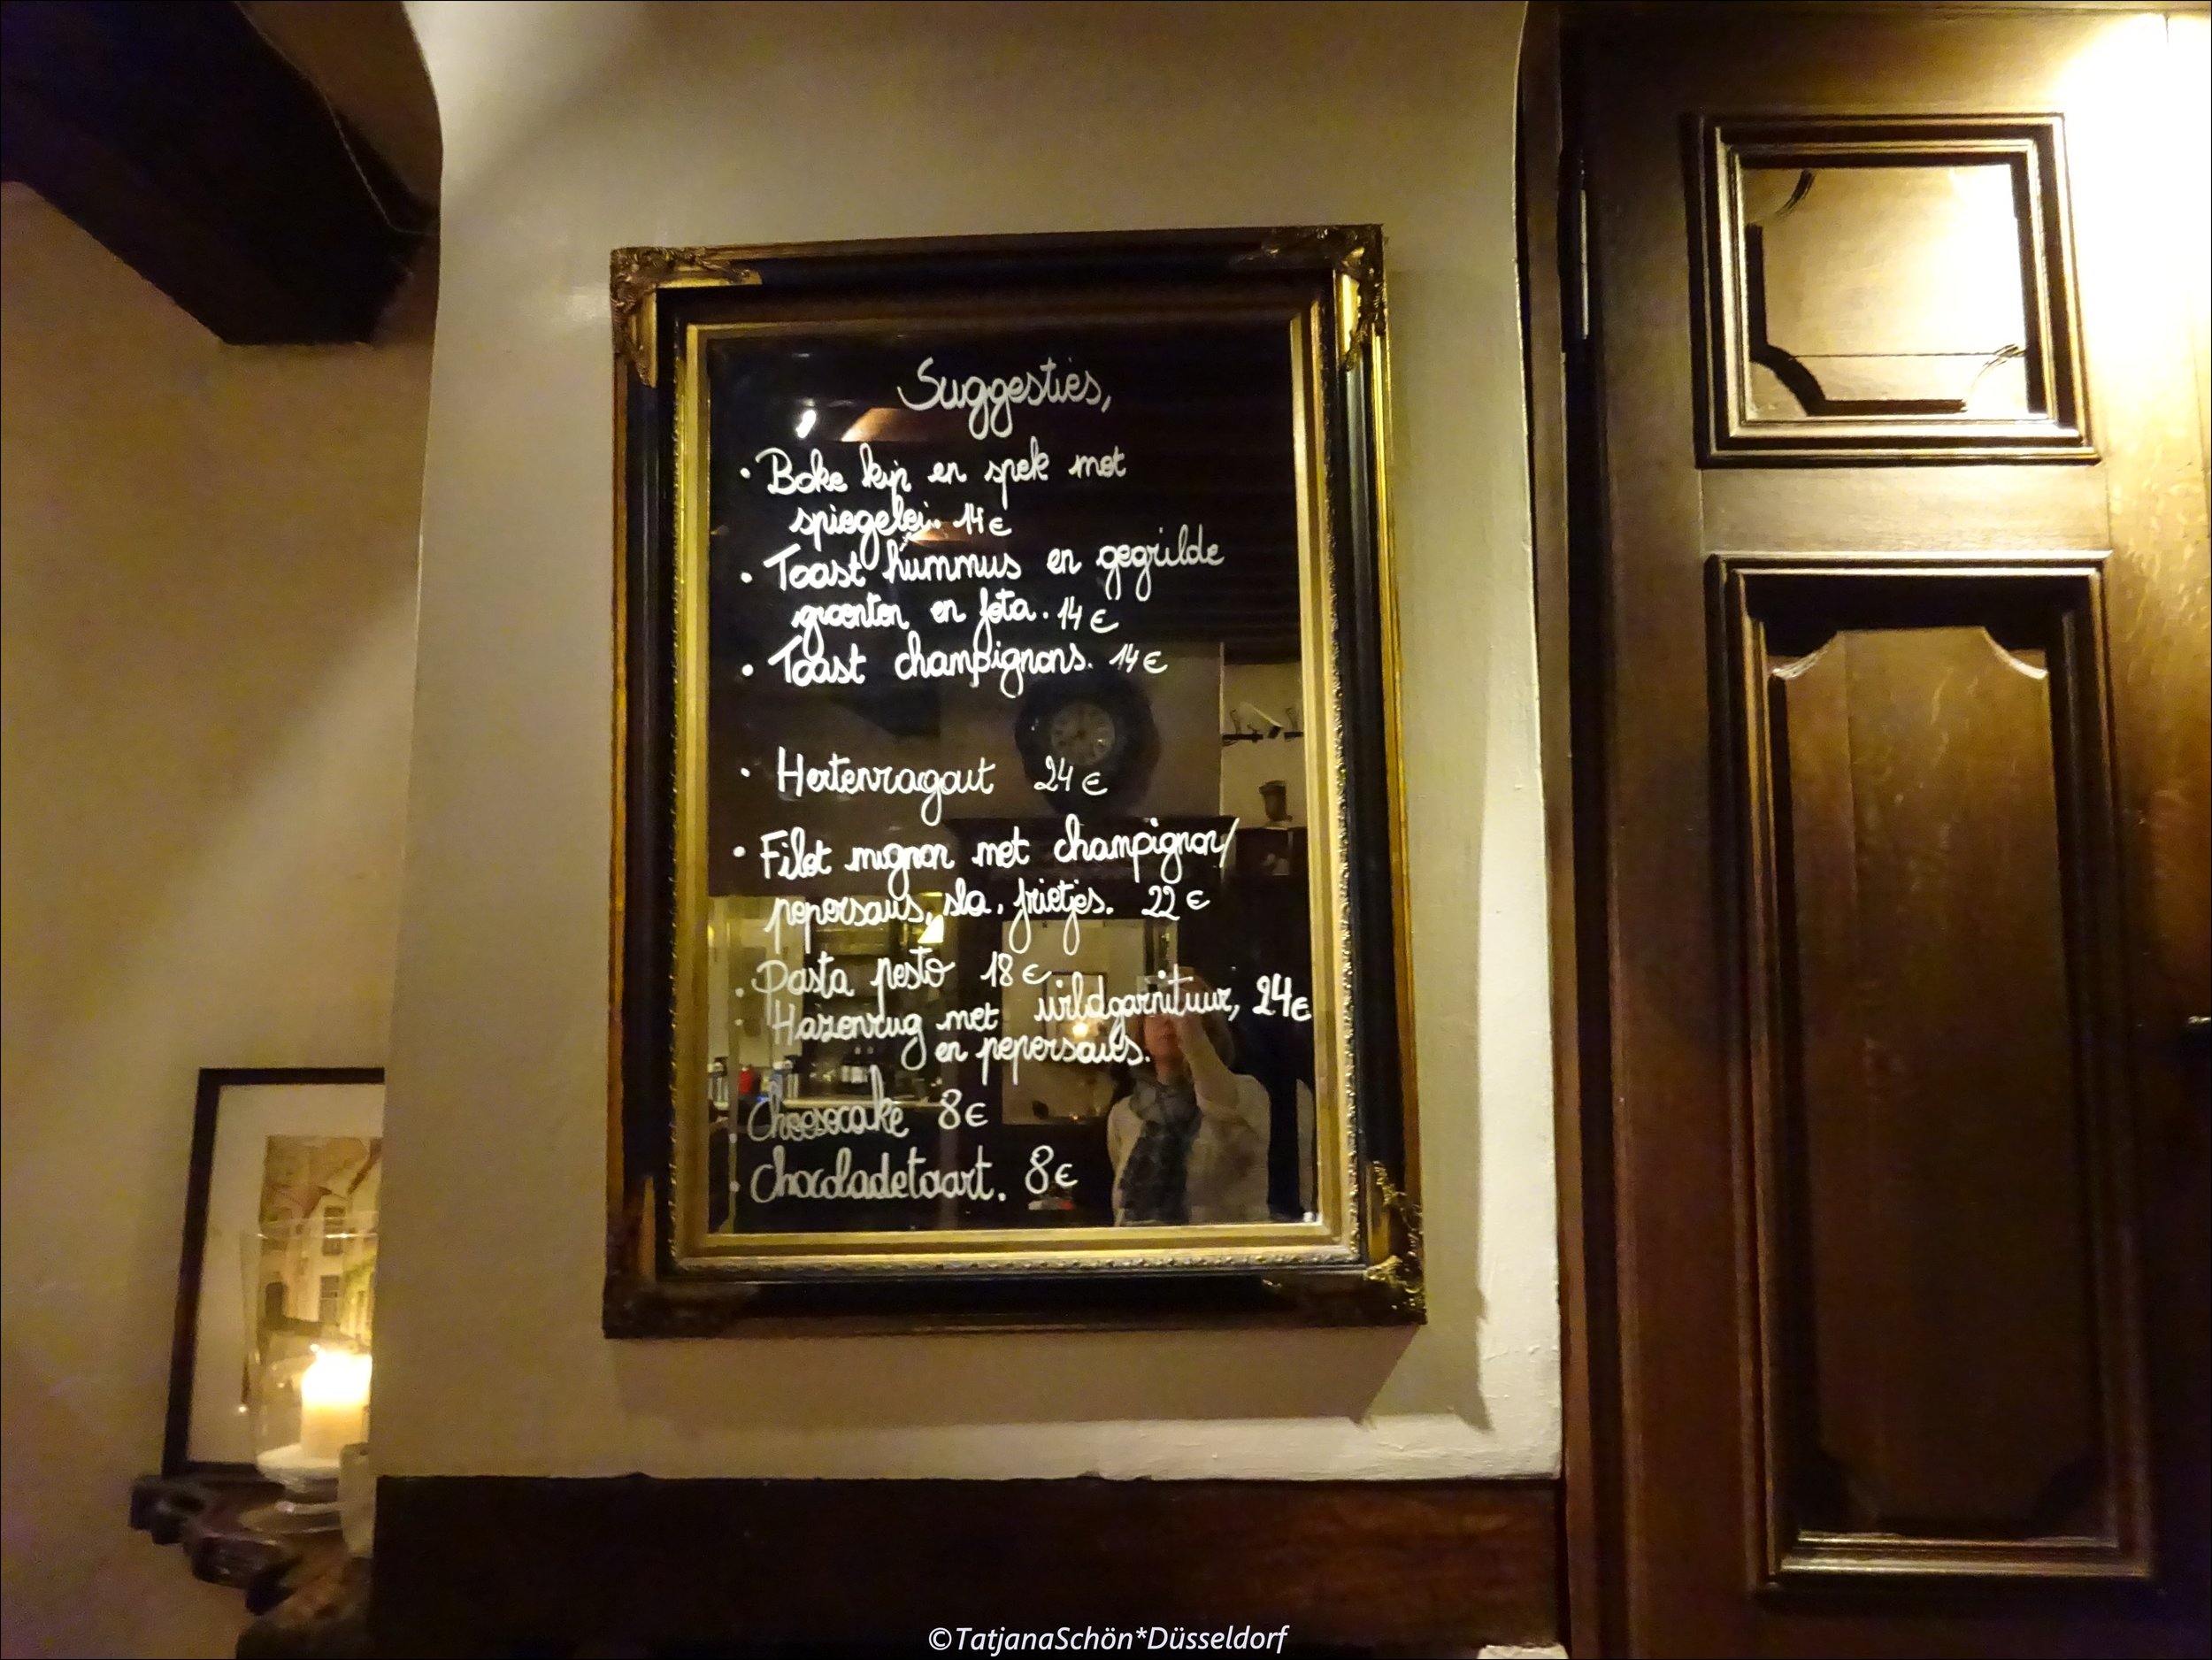 Suggesties,
• Boke kip en spek met
spiegelei. 14 €
• Toast hummus en gegrilde
groenten en feta. 14 €
• Toast champignons. 14 €
• Hertenragout 24 €
• Filet mignon met champignon/
pepersaus, sla, frietjes. 22 €
• Pasta pesto 18 €
• Hazenrug met wildgarnituur, 24 €
en pepersaus.
• Cheesecake 8 €
• Chocoladetaart. 8 €
©TatjanaSchön*Düsseldorf